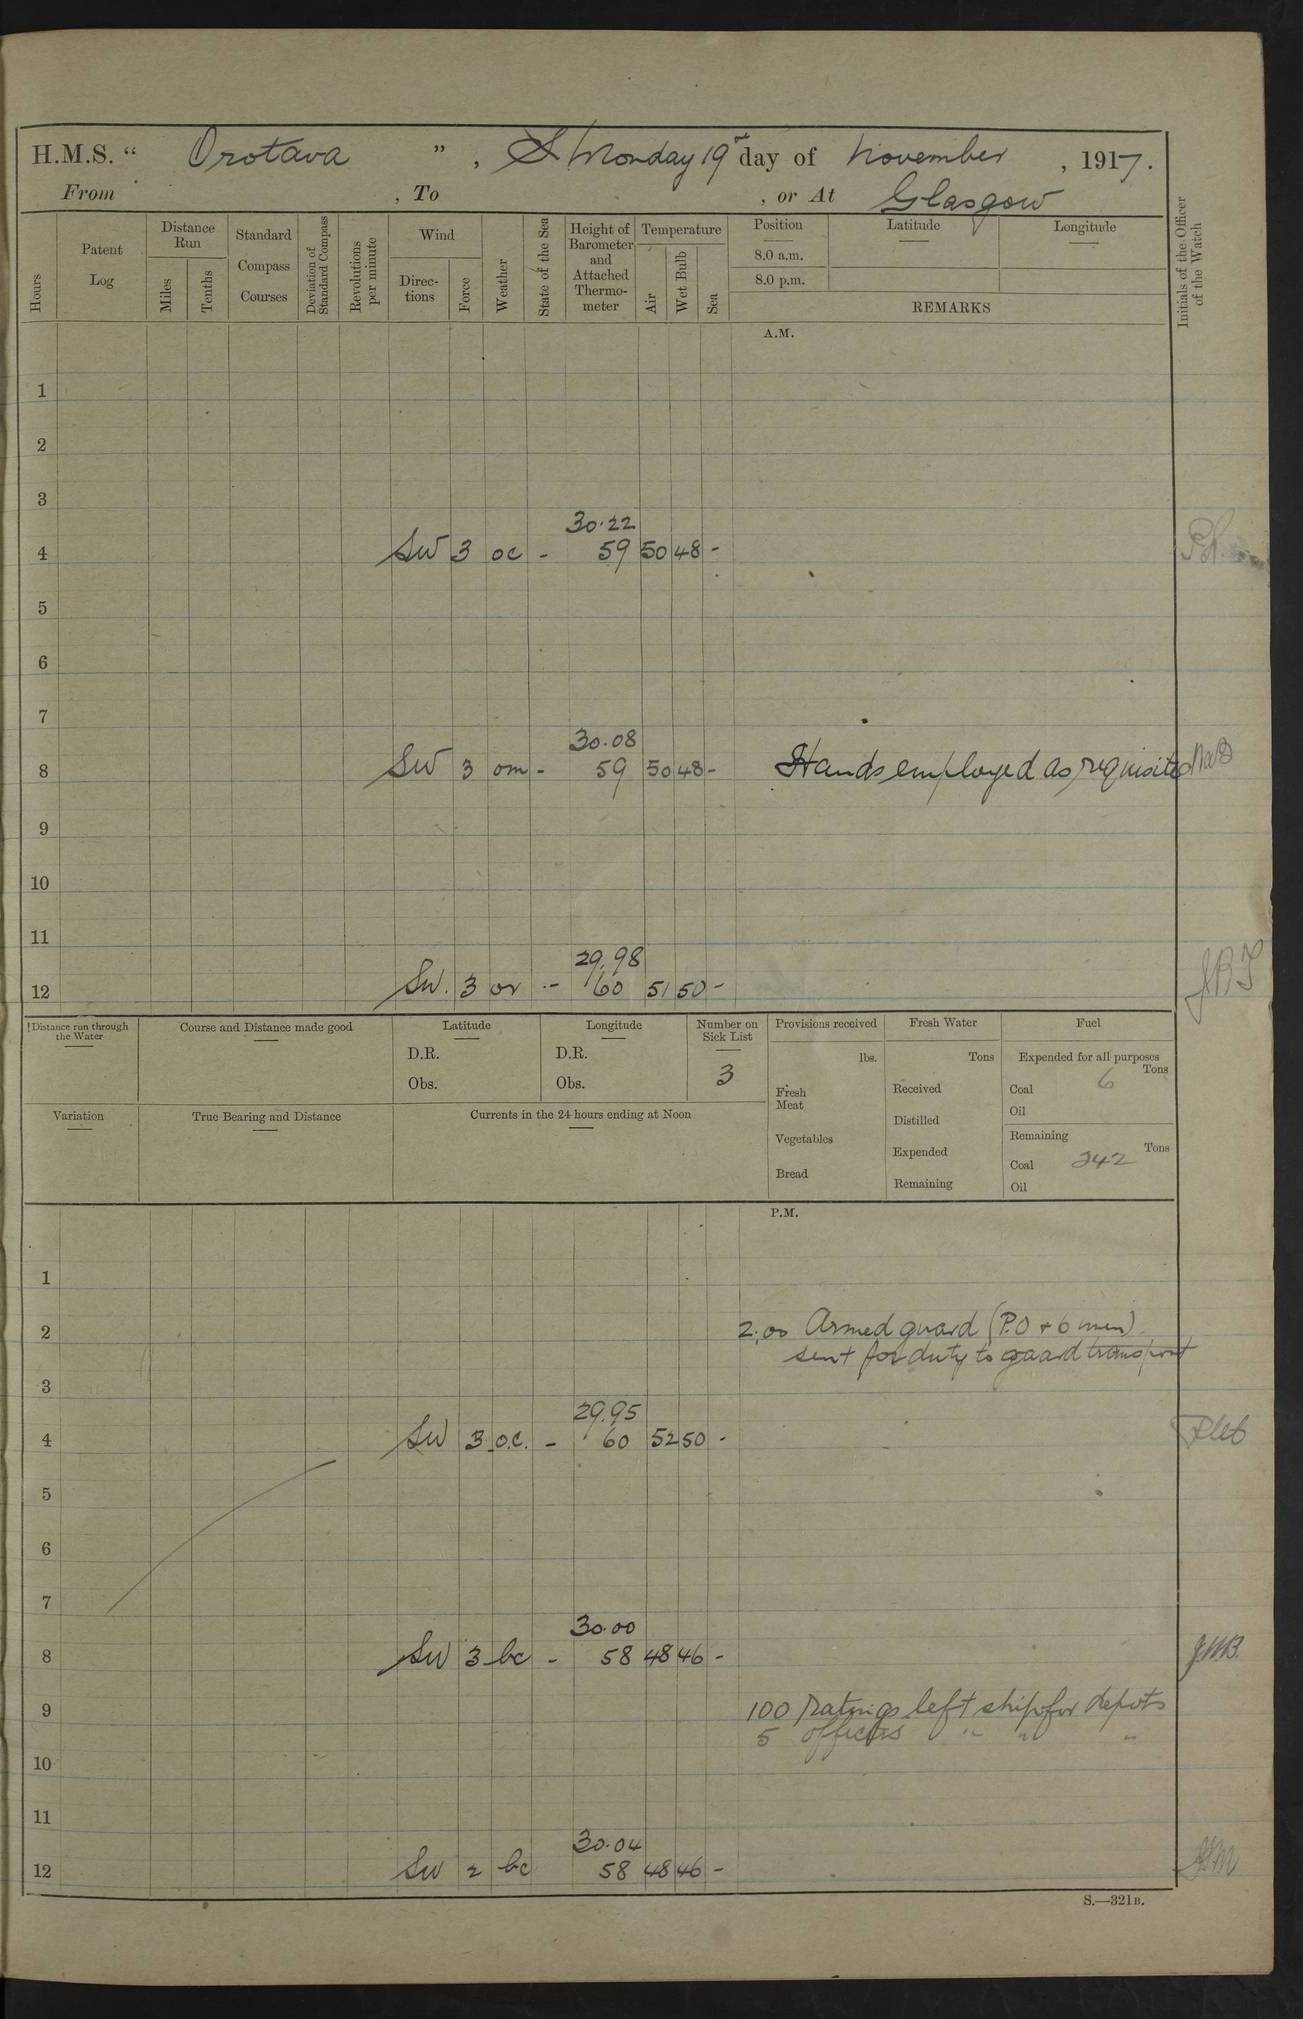 H.M.S. “ Orotava ” , Monday 19 day of November , 1917.
From , To , or At Glasgow
Hours
Patent Log
Distance Run
Miles
Tenths
Standard Compass Courses
Deviation of Standard Compass
Revolutions per minute
Wind
Directions
Force
Weather
State of the Sea
Height of Barometer and Attached Thermometer
Temperature
Air
Wet Bulb
Sea
Position
8.0 a.m.
8.0 p.m.
Latitude
Longitude
REMARKS
Initials of the Officer of the Watch
A.M.
1
2
3
30.22
4 SW 3 oc - 59 50 48 -
5
6
7
30.08
8 SW 3 om - 59 50 48 - Hands employed as requisite
9
10
11
29.98
12 SW. 3 or - 60 51 50 -
Distance run through the Water
Course and Distance made good
Latitude
D.R.
Obs.
Longitude
D.R.
Obs.
Number on Sick List
3
Provisions received
lbs.
Fresh Meat
Vegetables
Bread
Fresh Water
Tons
Received
Distilled
Expended
Remaining
Fuel
Expended for all purposes
Tons
Coal 6
Oil
Remaining
Tons
Coal 242
Oil
Variation
True Bearing and Distance
Currents in the 24 hours ending at Noon
P.M.
1
2 2.00 Armed guard (P.O + 6 men)
sent for duty to guard transport
3
29.95
4 SW 3 o.c. - 60 52 50 -
5
6
7
30.00
8 SW 3 bc - 58 48 46 - J.W.B.
9 100 Ratings left ship for depots
5 officers " " "
10
11
30.04
12 SW 2 bc 58 48 46 -
S.—321B.